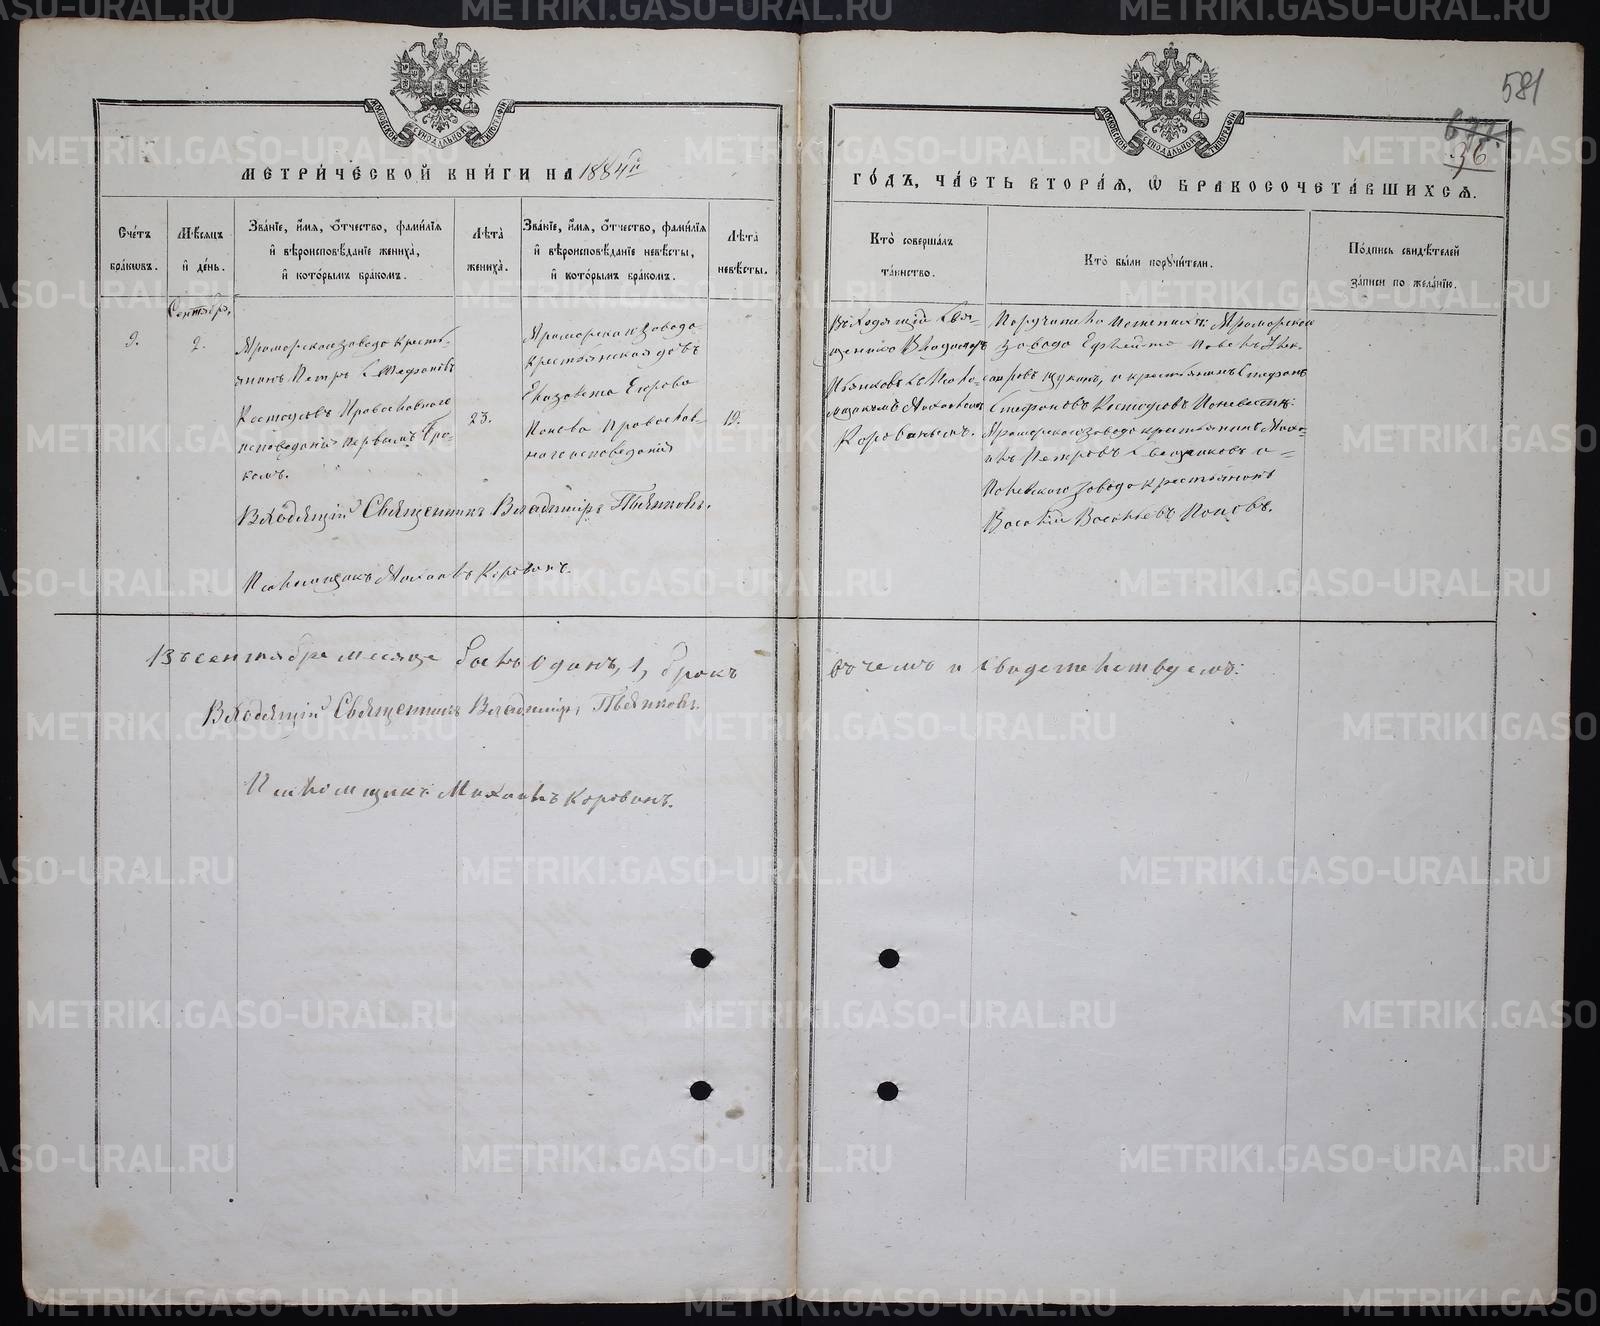 581
677.
36
МОСКОВСКОЙ СѴНОДАЛЬНОЙ ТИПОГРАФІИ
МОСКОВСКОЙ СѴНОДАЛЬНОЙ ТИПОГРАФІИ
МЕТРИ́ЧЕСКОЙ КНИ́ГИ НА 1884й
ГО́ДЪ, ЧА́СТЬ ВТОРА́Я, Ѡ БРАКОСОЧЕТА́ВШИХСЯ.
Сче́тъ бра́кѡвъ.
Мѣ́сяцъ и҆ де́нь.
Зва́нїе, и҆́мя, ѻ҆́тчество, фами́лїя
и҆ вѣроисповѣ́данїе жениха̀,
и҆ кото́рымъ бра́комъ.
Лѣ́та жениха̀.
Зва́нїе, и҆́мя, ѻ҆́тчество, фами́лїя
и҆ вѣроисповѣ́данїе невѣ́сты,
и҆ кото́рымъ бра́комъ.
Лѣ́та невѣ́сты.
Кто̀ соверша́лъ
та́инство.
Кто̀ бы́ли порꙋчи́тели.
По́дпись свидѣ́телей
за́писи по жела́нїю.
Сентября,
9.
2.
Мраморскаго завода кресть-
янинъ Петръ Стефановъ
Костоусовъ Православнаго
исповеданія первымъ бра-
комъ.
23.
Мраморскаго завода
крестьянская девъ
Елизавета Егорова
Попова Православ-
наго исповеданія
19.
Входящій Свя-
щенникъ Владимиръ
Пьянковъ съ Псало-
мщикомъ Михаиломъ
Коровинымъ.
Поручители по женихе: Мраморскаго
завода
Щукинъ, и крестьянинъ Стефанъ
Стефановъ Костоусовъ По невесте:
Мраморскаго завода крестьянинъ Миха-
илъ Петровъ и
завода крестьянинъ
Василій Васильевъ Поповъ.
Входящій Священникъ Владиміръ Пьянковъ.
Псаломщикъ Михаилъ Коровинъ.
Въ сентябре месяце былъ Одинъ, 1, бракъ
въ чемъ и свидетельствуемъ:
Входящій Священникъ Владиміръ Пьянковъ.
Псаломщикъ Михаилъ Коровинъ.
METRIKI.GASO-URAL.RU